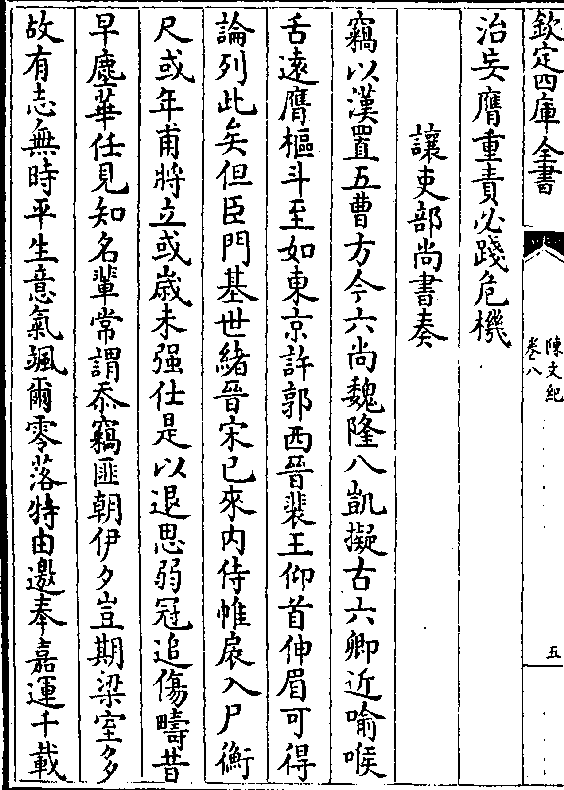 欽定四庫全書
陳文紀
卷八
五
治妄膺重責必踐危機
讓吏部尚書奏
竊以漢置五曹方今六尚魏隆八凱擬古六卿近喻喉
舌遠膺樞斗至如東京許郭西晉裴王仰首伸眉可得
論列此矣但臣門基世緒晉宋已來內侍帷扆入尸衡
尺或年甫將立或歲未强仕是以退思弱冠追傷疇昔
早塵華任見知名輩常謂忝竊匪朝伊夕豈期梁室多
故有志無時平生意氣颯爾零落特由邀奉嘉運千載